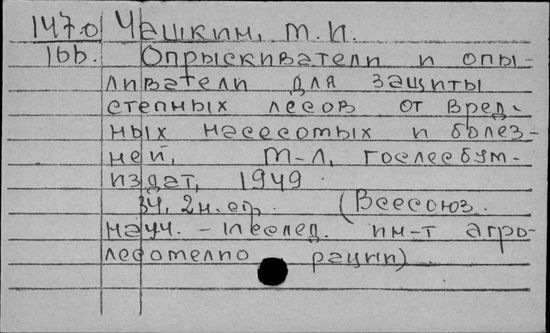 147.0 Чашкин, М. И.
166. Опрыскиватели и опы-
ливатели для защиты
степных лесов от вред-
ных насесомых и болез-
ней, М-Л, гослесбум-
издат, 1949.
34, 2н. стр. (Всесоюз.
науч. - исслед. ин-т агро-
лесомелио рации).